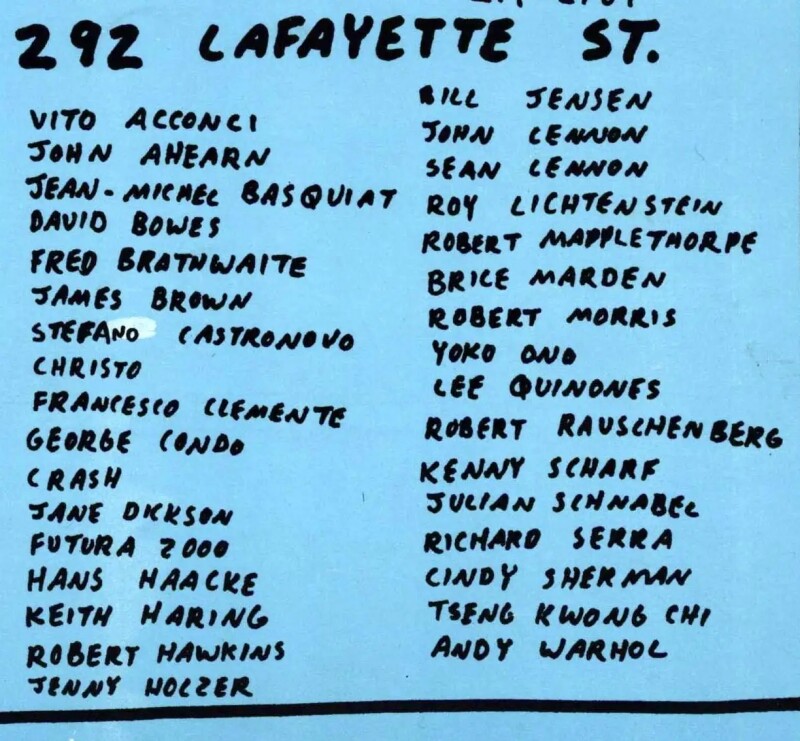 292 LAFAYETTE ST.
VITO ACCONCI
JOHN AHEARN
JEAN-MICHEL BASQUIAT
DAVID BOWES
FRED BRATHWAITE
JAMES BROWN
STEFANO CASTRONOVO
CHRISTO
FRANCESCO CLEMENTE
GEORGE CONDO
CRASH
JANE DICKSON
FUTURA 2000
HANS HAACKE
KEITH HARING
ROBERT HAWKINS
JENNY HOLZER
BILL JENSEN
JOHN LENNON
SEAN LENNON
ROY LICHTENSTEIN
ROBERT MAPPLETHORPE
BRICE MARDEN
ROBERT MORRIS
YOKO ONO
LEE QUINONES
ROBERT RAUSCHENBERG
KENNY SCHARF
JULIAN SCHNABEL
RICHARD SERRA
CINDY SHERMAN
TSENG KWONG CHI
ANDY WARHOL